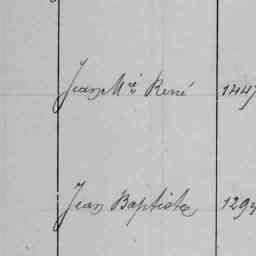 Jean Mie René 1447
Jean Baptiste 129